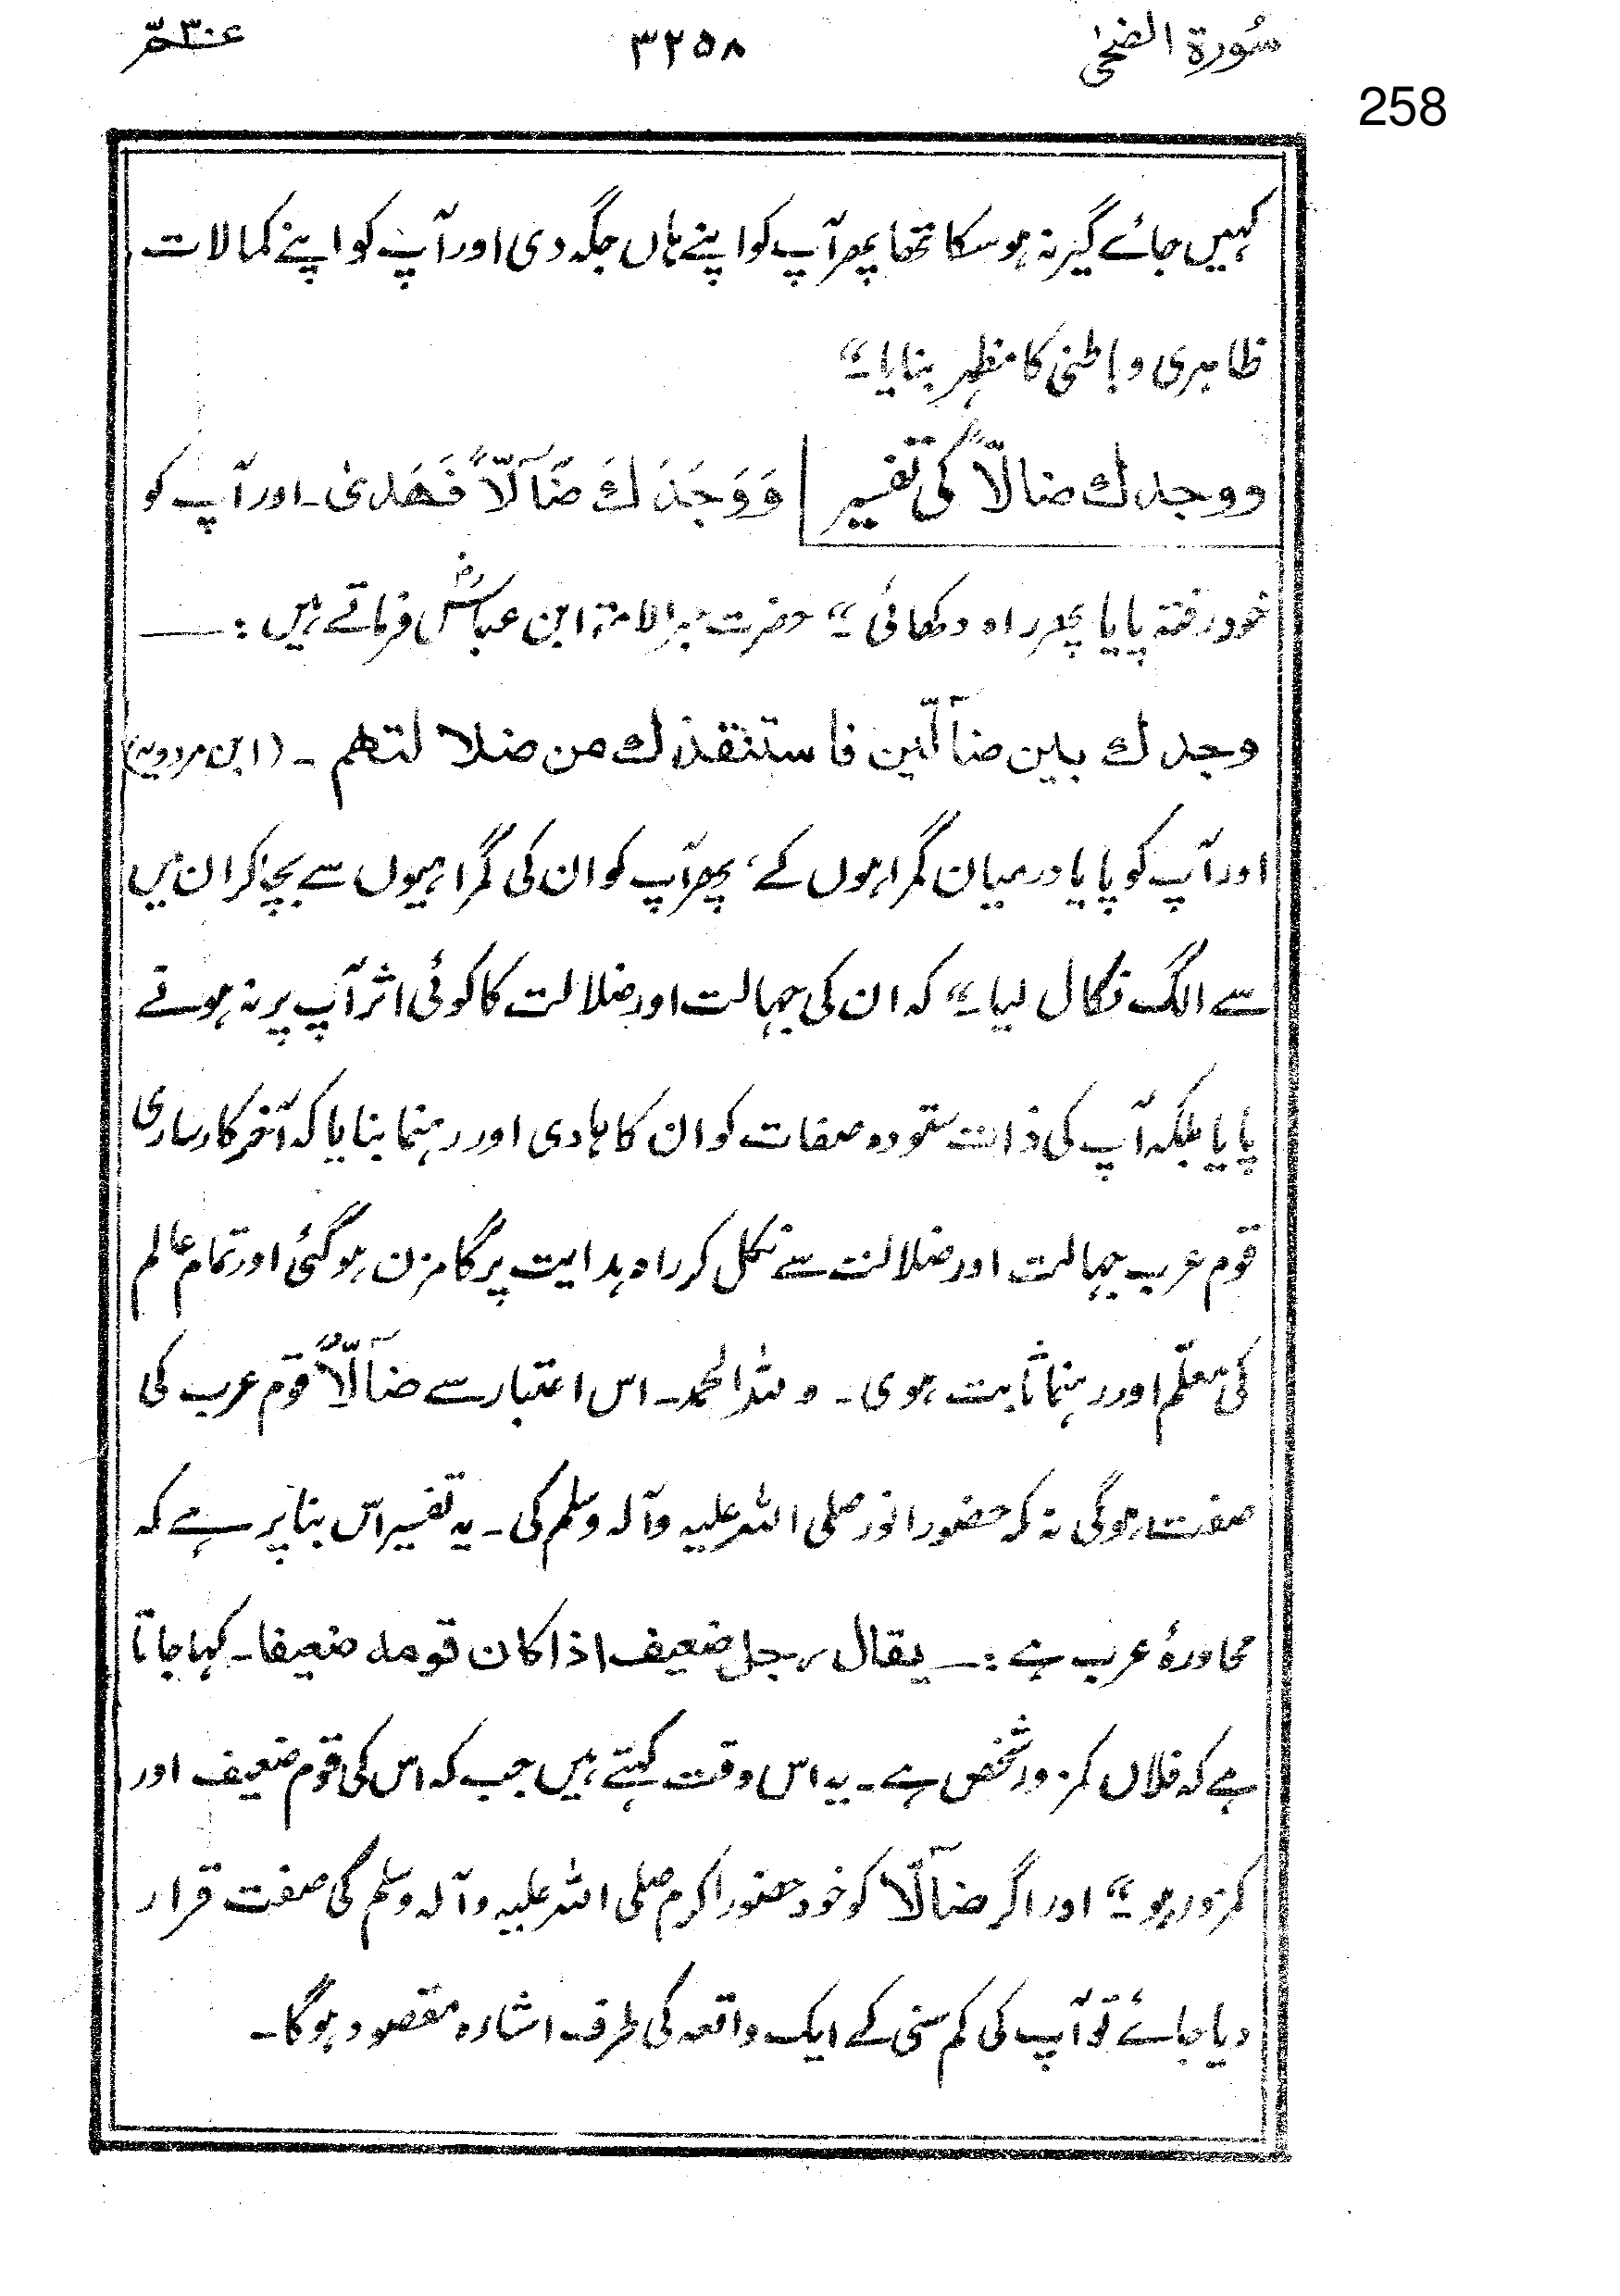 سُورۃ الضحٰی ۳۲۵۸ عمّ ۳۰
258
کہیں جائے گیر نہ ہو سکا تھا پھر آپ کو اپنے ہاں جگہ دی اور آپ کو اپنے کمالات
ظاہری و باطنی کا مظہر بنایا۔“
ووجدك ضالاً کی تفسیر وَوَجَدَكَ ضَآلّاً فَهَدٰی۔ اور آپ کو
خود رفتہ پایا پھر راہ دکھائی۔“ حضرت حبر الامۃ ابن عباسؓ فرماتے ہیں :ـــ
وجدك بين ضآلّين فاستنقذك من ضلا لتهم ۔ (ابن مردویہ)
اور آپ کو پایا درمیان گمراہوں کے، پھر آپ کو ان کی گمراہیوں سے بچا کر ان میں
سے الگ نکال لیا۔“ کہ ان کی جہالت اور ضلالت کا کوئی اثر آپ پر نہ ہونے
پایا بلکہ آپ کی ذات ستودہ صفات کو ان کا ہادی اور رہنما بنایا کہ آخر کار ساری
قوم عرب جہالت اور ضلالت سے نکل کر راہ ہدایت پر گامزن ہو گئی اور تمام عالم
کی معلّم اور رہنما ثابت ہوی ۔ وللہ الحمد۔ اس اعتبار سے ضآلّاً قوم عرب کی
صفت ہوگی نہ کہ حضور انور صلی اللہ علیہ وآلہ وسلم کی ۔ یہ تفسیر اس بنا پر ہے کہ
محاورۂ عرب ہے :ـــ يقال رجل ضعيف اذا كان قومه ضعيفا۔ کہا جاتا
ہے کہ فلاں کمزور شخص ہے ۔ یہ اس وقت کہتے ہیں جب کہ اس کی قوم ضعیف اور
کمزور ہو۔“ اور اگر ضآلّا کو خود حضور اکرم صلی اللہ علیہ وآلہ وسلم کی صفت قرار
دیا جائے تو آپ کی کم سنی کے ایک واقعہ کی طرف اشارہ مقصود ہوگا۔